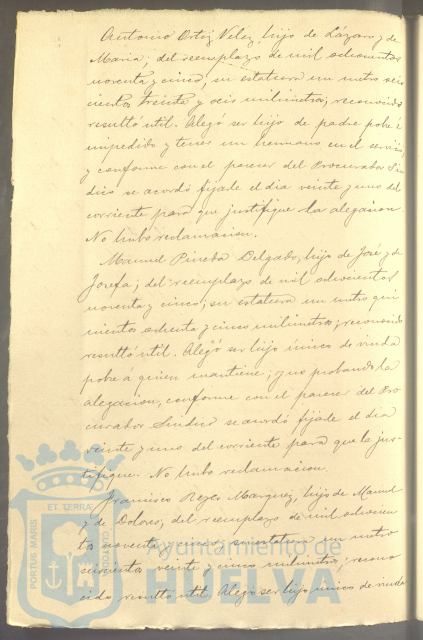 Antonio Ortiz Velez, hijo de Lázaro y de
Maria, del reemplazo de mil ochocientos
noventa y cinco, su estatura un metro seis
cientos treinta y seis milimetros; reconocido
resultó útil. Alegó ser hijo de padre pobre é
impedido y tener un hermano en el servicio
y conforme con el parecer del Procurador Sin
dico se acordó fijarle el dia veinte y uno del
corriente para que justifique la alegacion.
No hubo reclamacion.
Manuel Pineda Delgado, hijo de José y de
Josefa; del reemplazo de mil ochocientos
noventa y cinco; su estatura un metro qui
nientos ochenta y cinco milimetros; reconocido
resultó útil. Alegó ser hijo único de viuda
pobre á quien mantiene; y no probando la
alegacion, conforme con el parecer del Pro
curador Sindico se acordó fijarle el dia
veinte y uno del corriente para que la jus-
tifique. No hubo reclamacion.
Francisco Reyes Marquez, hijo de Manuel
y de Dolores, del reemplazo de mil ochocien
tos noventa y cinco, su estatura un metro
seiscientos veinte y cinco milimetros; recono
cido resultó útil. Alegó ser hijo único de viuda
PORTUS MARIS ET TERRÆ CUSTODIA
Ayuntamiento de
HUELVA